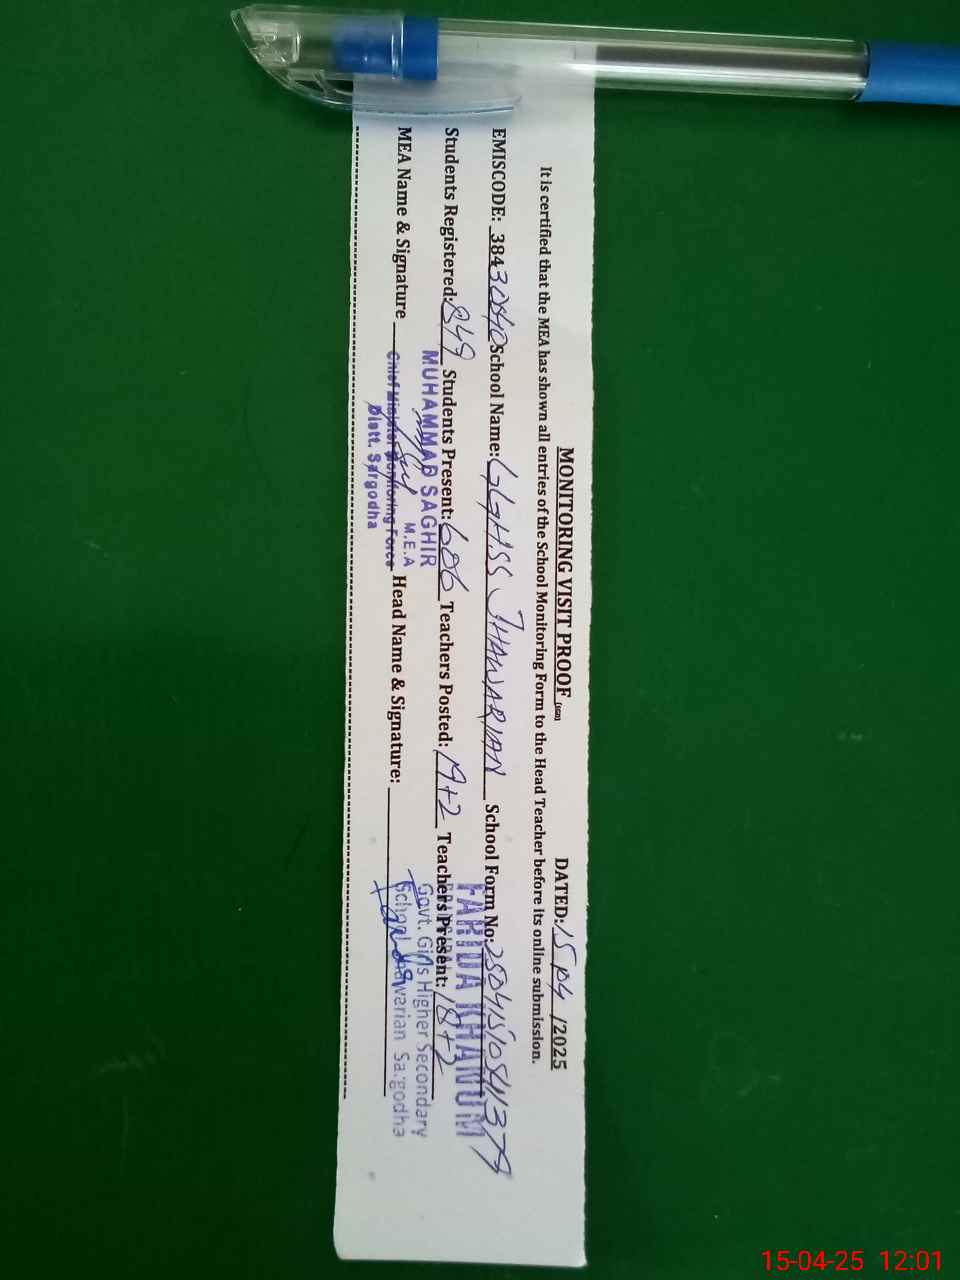 MONITORING VISIT PROOF DATED: 15 04 /2025
It is certified that the MEA has shown all entries of the School Monitoring Form to the Head Teacher before its online submission.
EMISCODE: 38430040 School Name: GGHSS JHAWARIAN School Form No: 
Students Registered: 849 Students Present: 606 Teachers Posted: 19+2 Teachers Present: 18+2
MEA Name & Signature Head Name & Signature:
MUHAMMAD SAGHIR
M.E.A
Chief Minister Monitoring Force
Distt. Sargodha
FARIDA KHANUM
PRINCIPAL
Govt. Girls Higher Secondary
School Jhawarian Sargodha
15-04-25 12:01